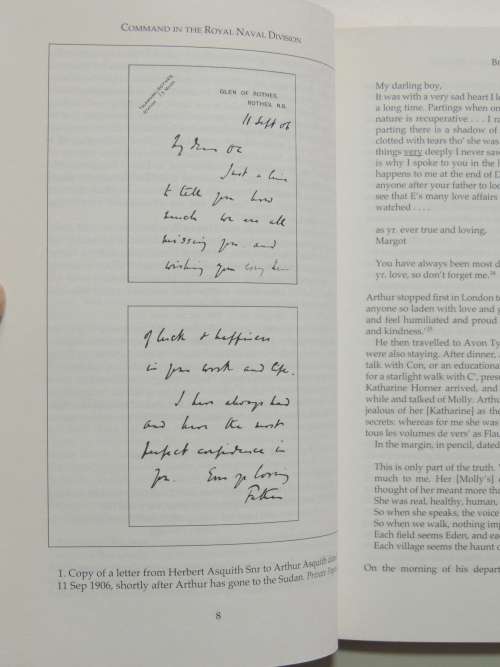 COMMAND IN THE ROYAL NAVAL DIVISION
GLEN OF ROTHES,
ROTHES, N.B.
11 Sept 06
My dear Oc
Just a line
to tell you how
much we are all
missing you and
wishing you every kind
of luck & happiness
in your work and life.
I have always had
and have the most
perfect confidence in
you. Ever yr loving
Father
1. Copy of a letter from Herbert Asquith Snr to Arthur Asquith
11 Sep 1906, shortly after Arthur has gone to the Sudan. Private
8
My darling boy,
It was with a very sad heart I
a long time. Partings when
nature is recuperative . . . I
parting there is a shadow of
clotted with tears tho' she was
things very deeply I never saw
is why I spoke to you in the
happens to me at the end of
anyone after your father to
see that E's many love affairs
watched . . . .
as yr. ever true and loving,
Margot
You have always been most
yr. love, so don't forget me.
Arthur stopped first in London
anyone so laden with love and
and feel humiliated and proud
and kindness.'
He then travelled to Avon
were also staying. After dinner,
talk with Con, or an educational
for a starlight walk with C',
Katharine Horner arrived, and
while and talked of Molly.
jealous of her [Katharine] as
secrets: whereas for me she was
tous les volumes de vers' as
In the margin, in pencil, dated
This is only part of the truth.
much to me, Her [Molly's]
thought of her meant more
She was real, healthy, human,
So when she speaks, the voice
So when we walk, nothing
Each field seems Eden, and
Each village seems the haunt
On the morning of his